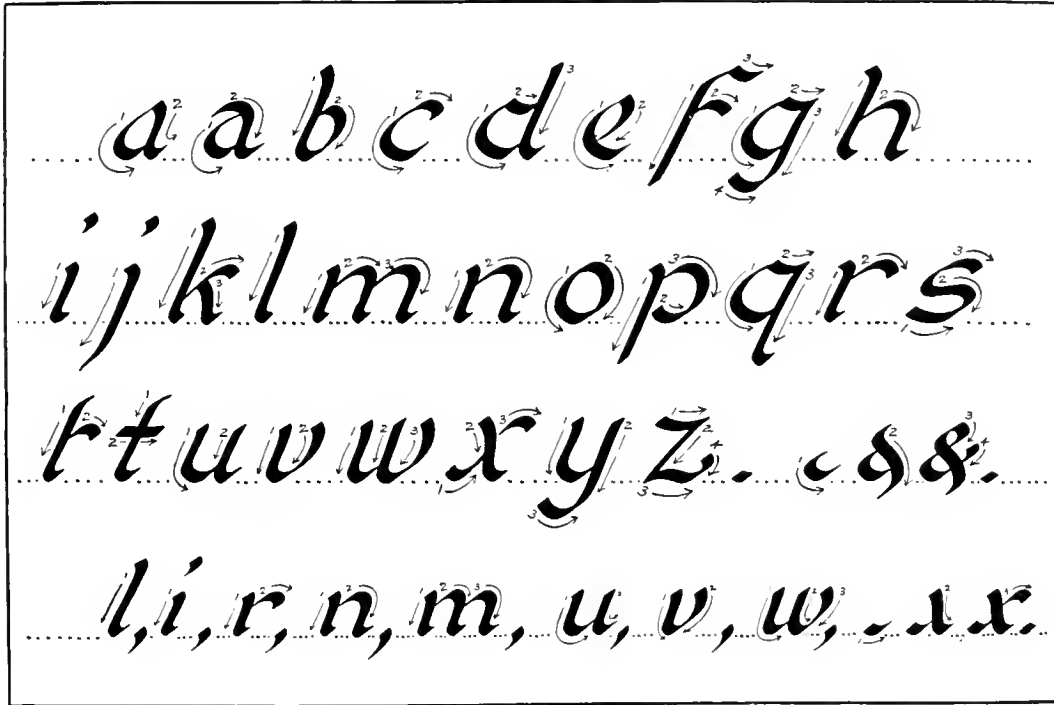 a a b c d e f g h
i j k l m n o p q r s
t t u v w x y z. &.
l, i, r, n, m, u, v, w, x.